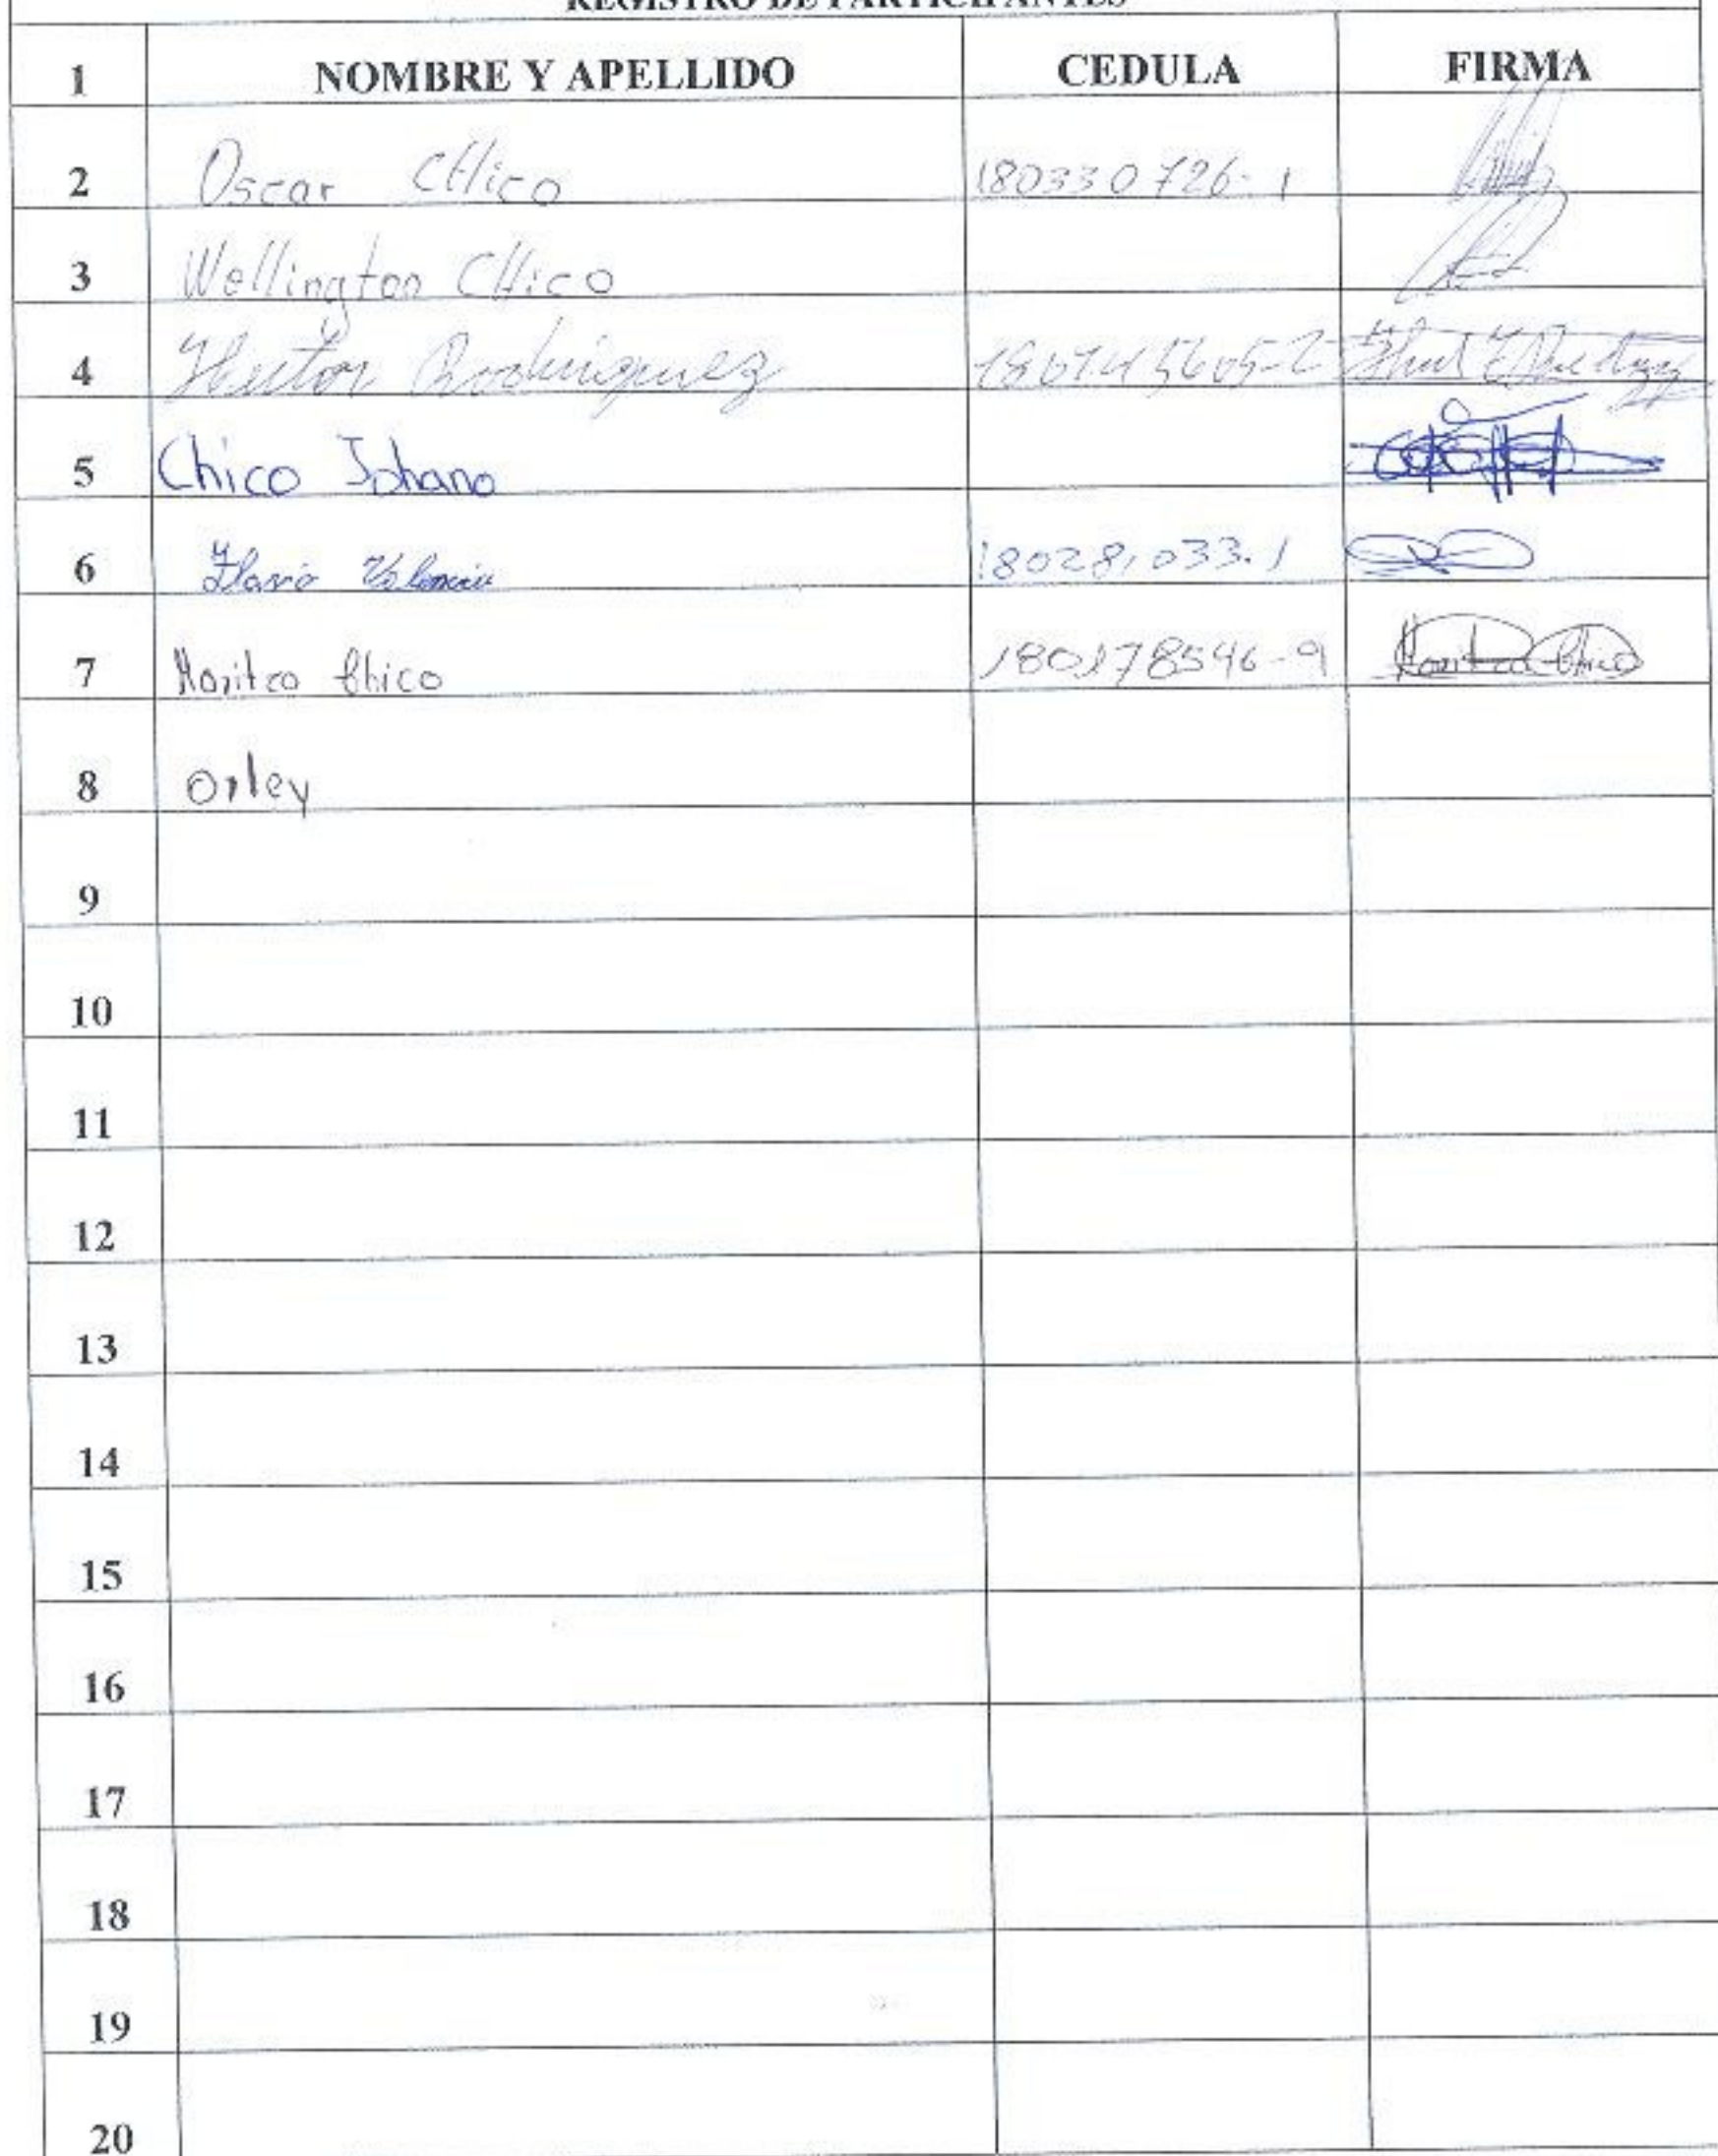 REGISTRO DE PARTICIPANTES
1 NOMBRE Y APELLIDO CEDULA FIRMA
2 Oscar CHico 180330726-1
3 Wellington CHico
4 Hector Rodriguez
5 Chico Johana
6 Flavio 180281033.1
7 Maritza Chico 180178546-9 Maritza Chico
8 Orley
9
10
11
12
13
14
15
16
17
18
19
20